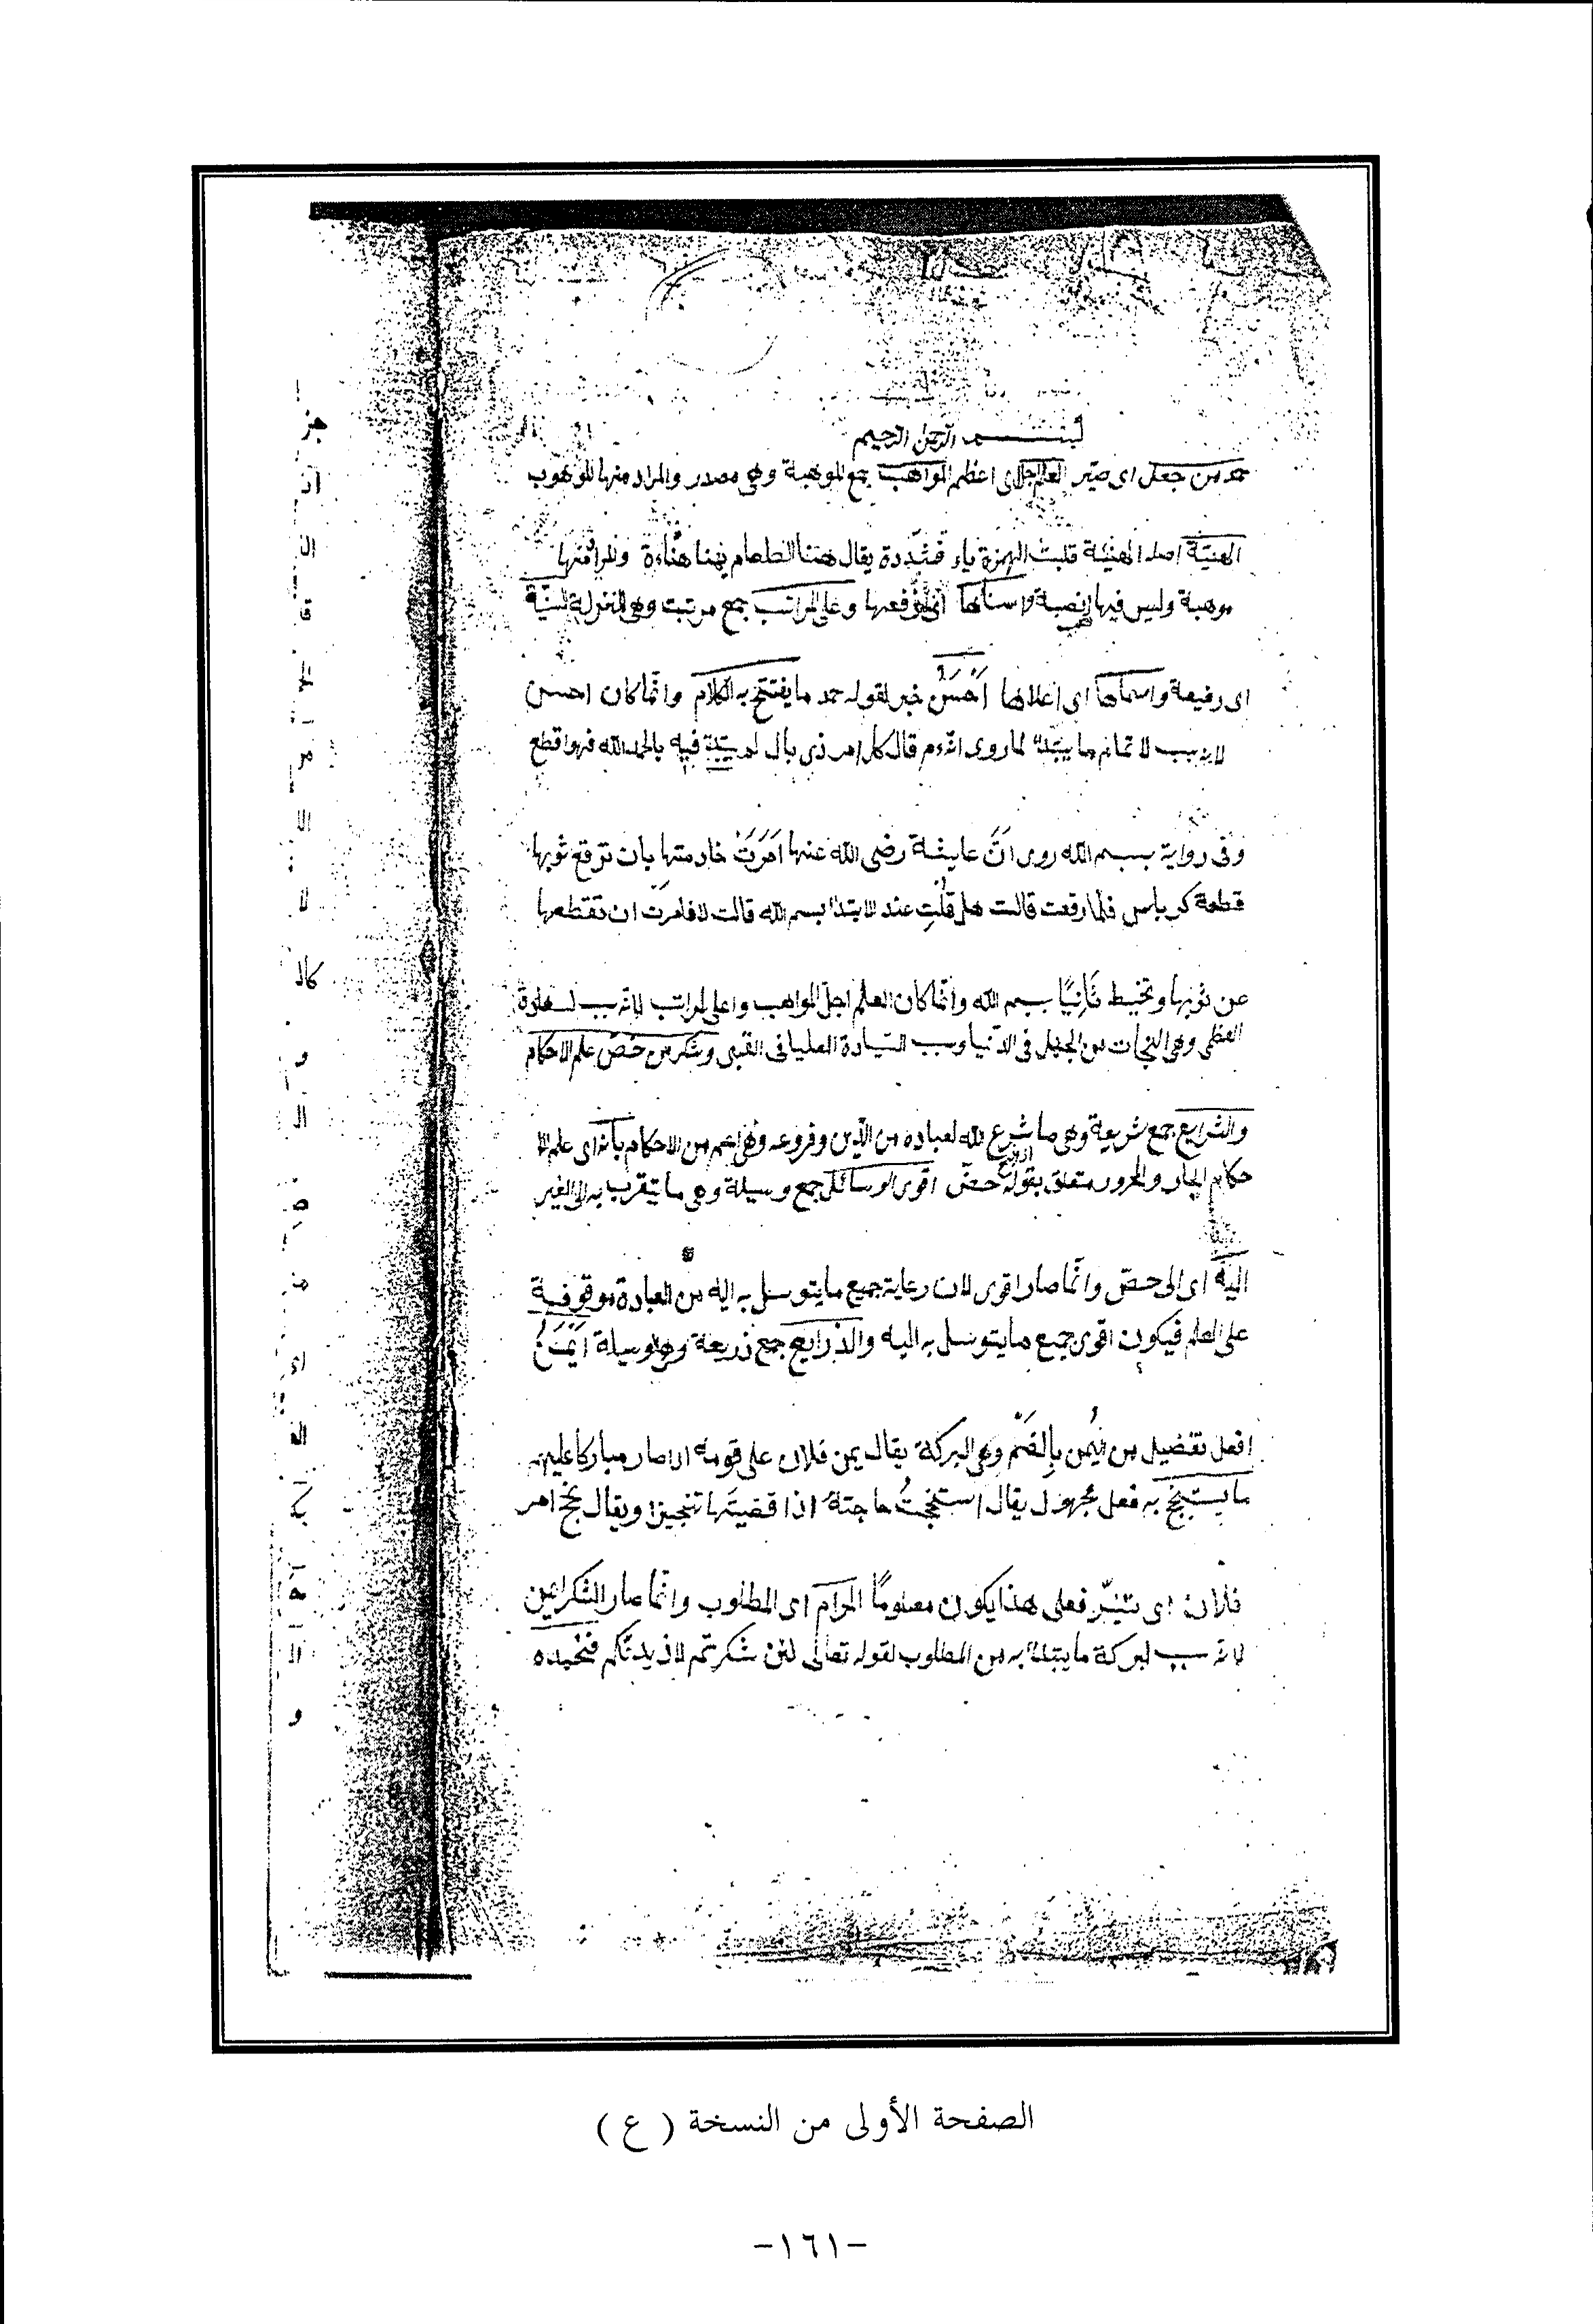 بسم الرحمن الرحيم
حمد من جعل اى صيّر العلم اجلّ اى اعظم المواهب جمع الموهبة وهى مصدر والمراد منها الموهوب
الهنيّة اصله الهنيئة قلبت الهمزة ياء فشدّدة يقال هنئا الطعام يهنا هنّاءة
موهبة وليس فيها نصبة واسناها اى ارفعها وعلى المراتب جمع مرتبت وهى المنزلة السنيّة
اى رفيعة واسماها اى اعلاها اَحْسَنُ خبر لقوله حمد ما يفتتح به الكلام وانّما كان احسن
لانه سبب لاتمام ما يبتدأ لما روى انّه م قال كل امر ذى بال لم يبتدء فيه بالحمد الله فهو اقطع
وفى رواية ببسم الله روى انَّ عايشة رضى الله عنها اَمَرَتْ خادمتها بان ترقع ثوبها
قطعة كرباس فلما رقعت قالت هل قلتِ عند الابتدا بسم الله قالت لا فامرت ان تقطعها
عن ثوبها وتخيط ثَانِيًا ببسم الله وانّما كان العلم اجلّ المواهب واعلى المراتب لانه سبب لسعادة
العظمى وهى النجات من الجهل فى الدّنيا وسبب السّيادة العليا فى العقبى وشكر من خصّ علم الاحكام
والشرايع جمع شريعة وهى ما شرع الله لعباده من الدّين وفروعه وهى اعم من الاحكام بأنه اى علم الا
حكام الجار والمجرور متعلق بقوله خصّ اقوى الوسائل جمع وسيلة وهى ما يتقرب به الى الغير
اليه اى الى خصّ وانّما صار اقوى لان رعاية جميع ما يتوسل به اليه من العبادة موقوفة
على العلم فيكون اقوى جميع ما يتوسل به اليه والذرايع جمع ذريعة وهى الوسيلة اَيْمَنُ
افعل تفضيل من اليُمن بالضّم وهى البركة يقال يمن فلان على قومه اذا صار مباركا عليهم
ما يستنجح به فعل مجهول يقال استنجحتُ حاجتهُ اذا قضيتها تنجيزا ويقال نجح امر
فلان اى تيسّر فعلى هذا يكون معلومًا المرام اى المطلوب وانّما صار الشكر ايمن
لانّه سبب لبركة ما يبتدأ به من المطلوب لقوله تعالى لئن شكرتم لازيدنّكم فنحمده
الصفحة الأولى من النسخة ( ع )
-١٦١-